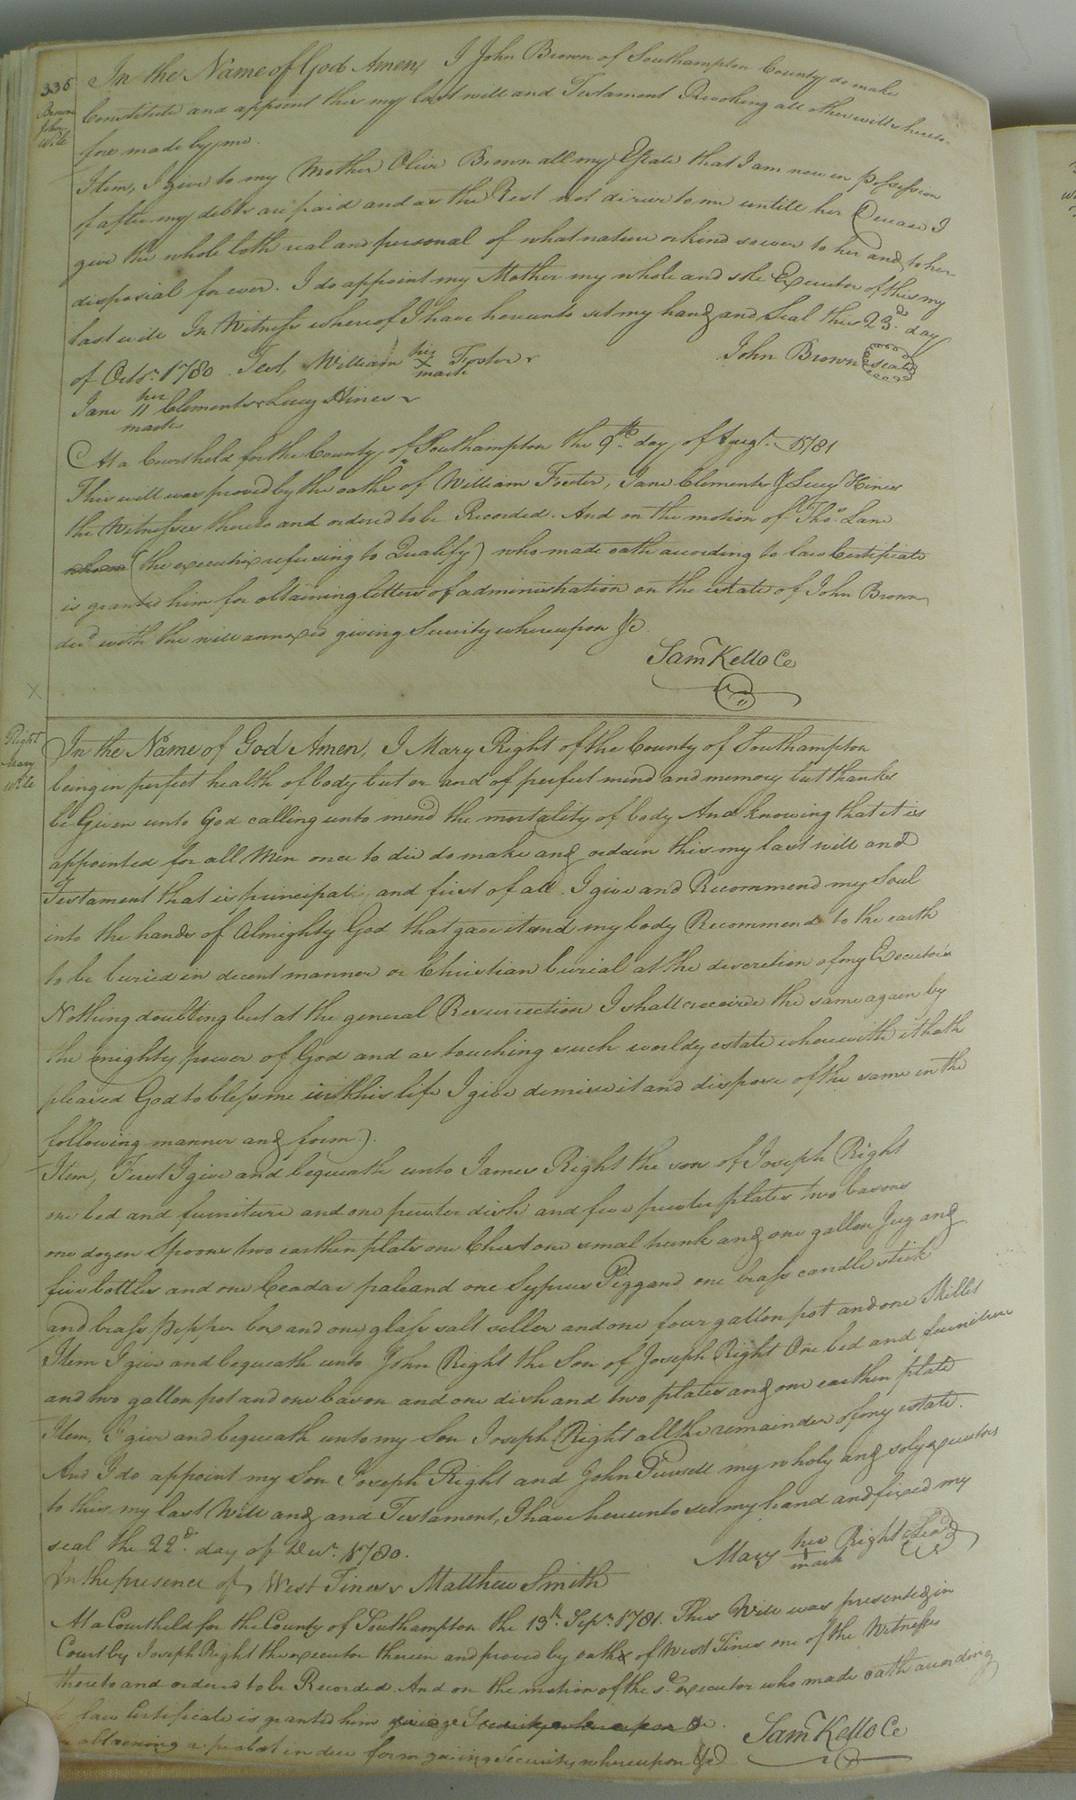 336
Brown
John
Wile
In the Name of God Amen, I John Brown of Southampton County do make
Constitute and appoint this my last will and Testament Revoking all other wills hereto-
fore made by me.
Item, I give to my Mother Olive Brown all my Estate that I am now in possession
of after my debts are paid and as the Rest not
untill her Decease I
give the whole both real and personal of what nature or kind soever to her and to her
disposial for ever. I do appoint my Mother my whole and sole Executor of this my
last will In Witness whereof I have hereunto set my hand and Seal this 23d. day
of Octr. 1780 Test, William his x mark Foster
John Brown (seal)
Jane her 11 mark Clements Lucy Hines
At a Court held for the County of Southampton the 9th. day of Augt. 1781
This will was proved by the oaths of William Foster, Jane Clements & Lucy Hines
the Witnesses thereto and ordered to be Recorded. And on the motion of Thos. Lane
(the executrix refusing to Qualify) who made oath according to law Certificate
is granted him for obtaining letters of administration on the estate of John Brown
decd. with the will annexed giving Security whereupon &c
Saml Kello Cc
Right
Mary
Wile
In the Name of God Amen, I Mary Right of the County of Southampton
being in perfect health of body but or and of perfect mind and memory but thanks
be Given unto God calling unto mind the mortality of body And knowing that it is
appointed for all Men once to die do make and ordain this my last will and
Testament that is principali and first of all. I give and Recommend my Soul
into the hands of Almighty God that gave it and my body Recommend to the earth
to be buried in decent manner or Christian burial at the discretion of my Executors
Nothing doubting but at the general Resurrection I shall receive the same again by
the mighty power of God and as touching such worldy estate wherewith it hath
pleased God to bless me in this life I give demise it and dispose of the same in the
following manner and form.
Item, First I give and bequeath unto James Right the son of Joseph Right
one bed and furniture and one pewter dish and five pewter plates two basons
one dozen Spoons two earthen plats one Chest one smal trunk and one gallon Jug and
five bottles and one Ceadar pale and one Syprus Piggand one brass candle stick
and brass Pepper box and one glass salt seller and one four gallon pot and one Skillet
Item I give and bequeath unto John Right the Son of Joseph Right One bed and furniture
and two gallon pot and one bason and one dish and two plates and one earthen plate
Item, I give and bequeath unto my Son Joseph Right all the remainder of my estate.
And I do appoint my Son Joseph Right and John Pursell my wholy and soly executors
to this my last Will and and Testament, I have hereunto set my hand and fixed my
seal the 22d. day of Decr. 1780.
Mary her + mark Right (Seal)
In the presence of West Tines Matthew Smith
At a Court held for the County of Southampton the 13th. Sepr. 1781. This Will was presented in
Court by Joseph Right the executor therein and proved by oaths of West Tines one of the Witnesses
thereto and ordered to be Recorded. And on the motion of the sd. executor who made oath according
law Certificate is granted him giving Security whereupon &c.
obtaining a probat in due form giving security whereupon &c
Saml Kello Cc